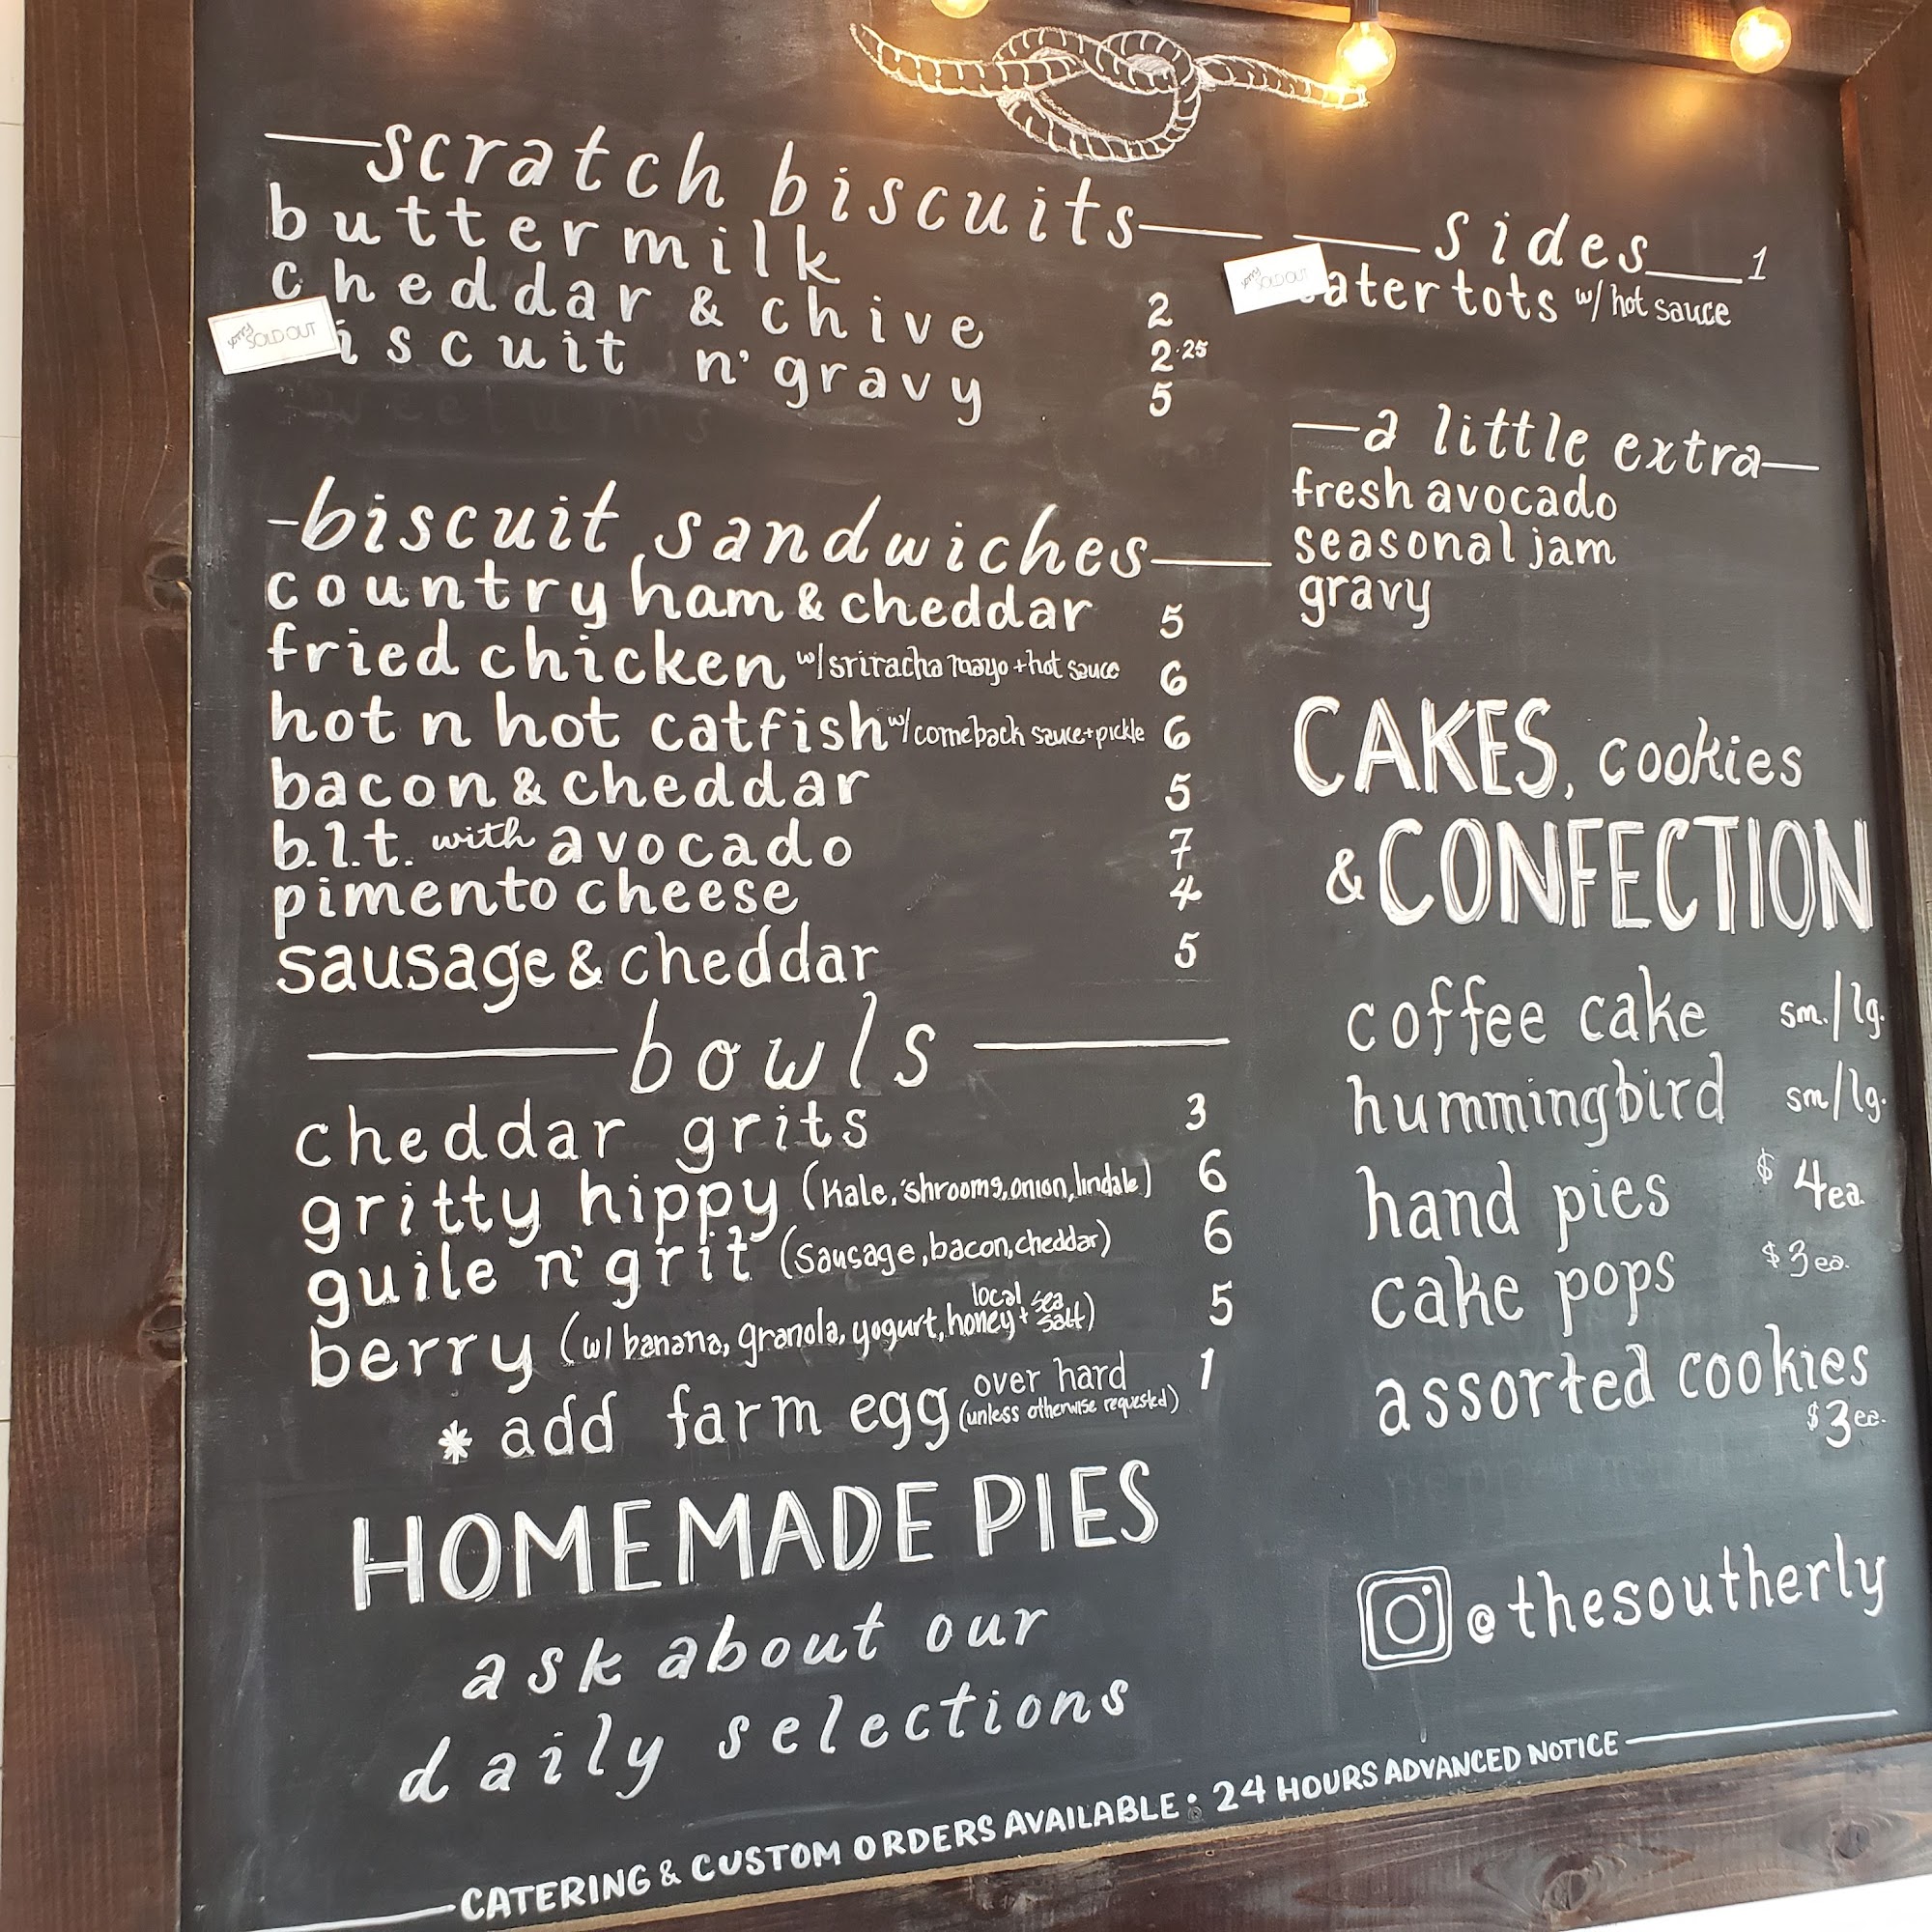 scratch biscuits
buttermilk 2
cheddar & chive 2.25
SORRY SOLD OUT
iscuit n' gravy 5
biscuit sandwiches
country ham & cheddar 5
fried chicken w/ sriracha mayo + hot sauce 6
hot n hot catfish w/ comeback sauce + pickle 6
bacon & cheddar 5
b.l.t. with avocado 7
pimento cheese 4
sausage & cheddar 5
bowls
cheddar grits 3
gritty hippy (kale, 'shrooms, onion, lindale) 6
guile n' grit (sausage, bacon, cheddar) 6
berry (w/ banana, granola, yogurt, local honey + sea salt) 5
* add farm egg over hard (unless otherwise requested) 1
HOMEMADE PIES
ask about our
daily selections
sides 1
SORRY SOLD OUT
ater tots w/ hot sauce
a little extra
fresh avocado
seasonal jam
gravy
CAKES, cookies
& CONFECTION
coffee cake sm./lg.
hummingbird sm/lg.
hand pies $4ea.
cake pops $3ea.
assorted cookies
$3ea.
@thesoutherly
CATERING & CUSTOM ORDERS AVAILABLE: 24 HOURS ADVANCED NOTICE